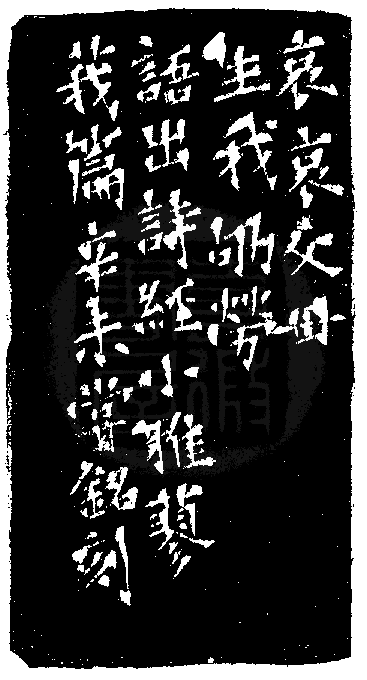 哀哀父母
生我劬勞
語出詩經小雅蓼
莪篇辛未銘刻